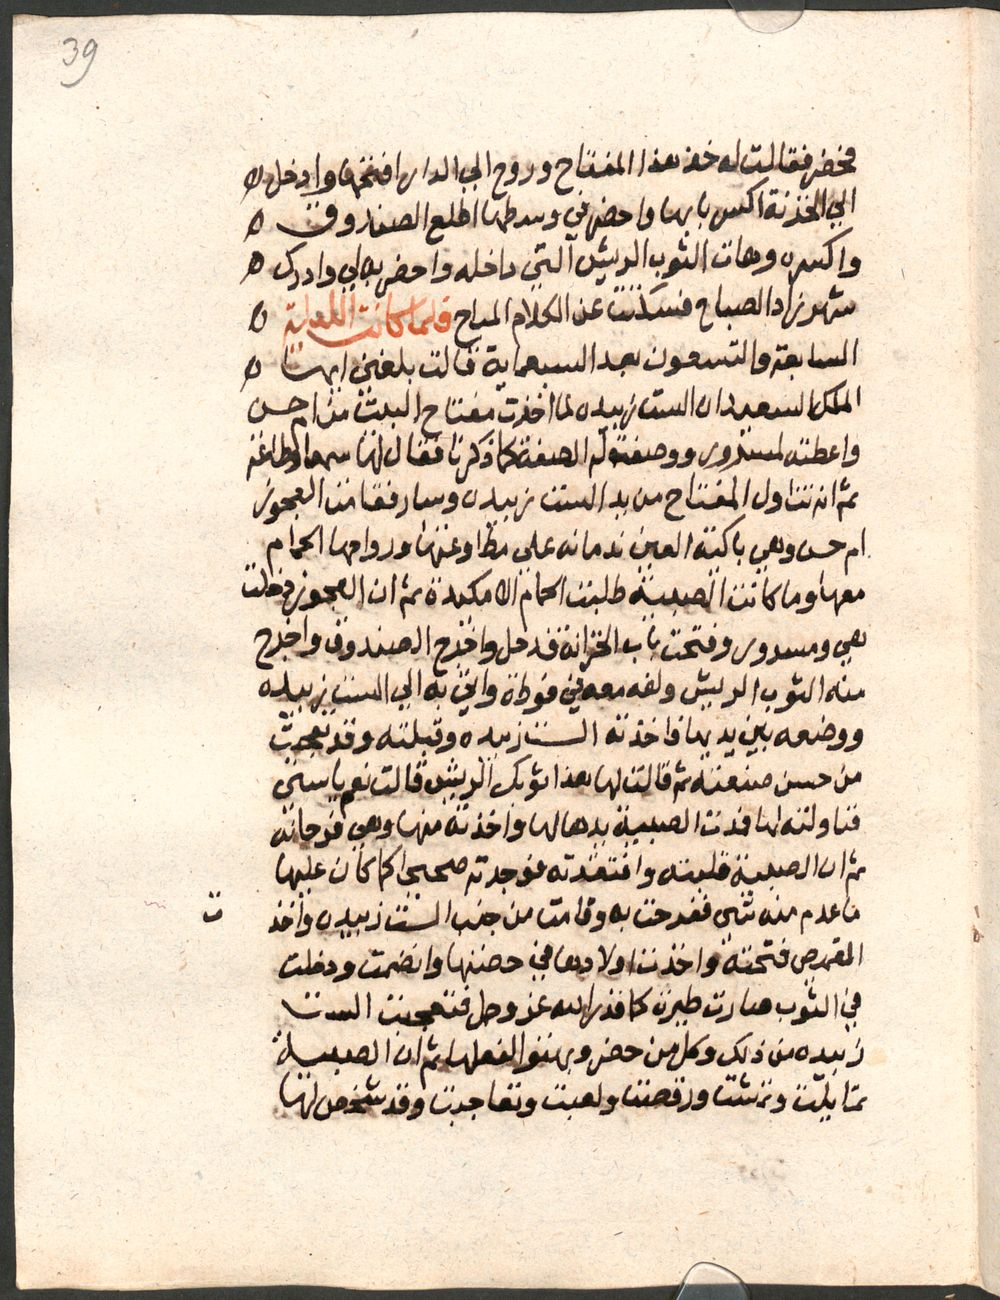 39
فحضر فقالت له خذ هذا المفتاح وروح الي الدار افتحها وادخل ه
الي المخزنة اكسر بابها واحضر في وسطها اطلع الصندوق ه
واكسره وهات الثوب الريش التي داخله واحضر به لي وادرك ه
شهرزاد الصباح فسكتت عن الكلام المباح فلما كانت الليلة ه
السابعة والتسعون بعد السبعماية قالت بلغني ايها ه
الملك السعيد ان الست زبيده لما اخذت مفتاح البيت من ام حسن
واعطته لمسرور ووصفت له الصفة كما ذكرنا فقال لها سمعا وطاعة
ثم انه تناول المفتاح من يد الست زبيده وسار فقامت العجوز
ام حسن وهي باكية العين ندمانه على مطاوعتها ورواحها الحمام
معها وما كانت الصبية طلبت الحمام الا مكيدة ثم ان العجوز دخلت
هي ومسرور وفتحت باب الخزانة فدخل واخرج الصندوق واخرج
منه الثوب الريش ولفه معه في فوطة واتي به الي الست زبيده
ووضعه بين يديها فاخذته الست زبيده وقبلته وقد تعجبت
من حسن صنعته ثم قالت لها هذا ثوبك الريش قالت نعم ياستي
فناولته لها فمدت الصبية يدها لها واخذته منها وهي فرحانة
ثم ان الصبية قلبته وافتقدته فوجدته صحيحا كما كان عليها
ما عدم منه شي ففرحت به وقامت من جنب الست زبيده واخذ
ت
القميص فتحته واخذت اولادها في حضنها وانضمت ودخلت
في الثوب صارت طيرة كما قدر الله عز وجل فتعجبت الست
زبيده من ذلك وكل من حضر وبهتوا لفعلها ثم ان الصبية
تمايلت وتمشت ورقصت ولعبت وقد شخص لها